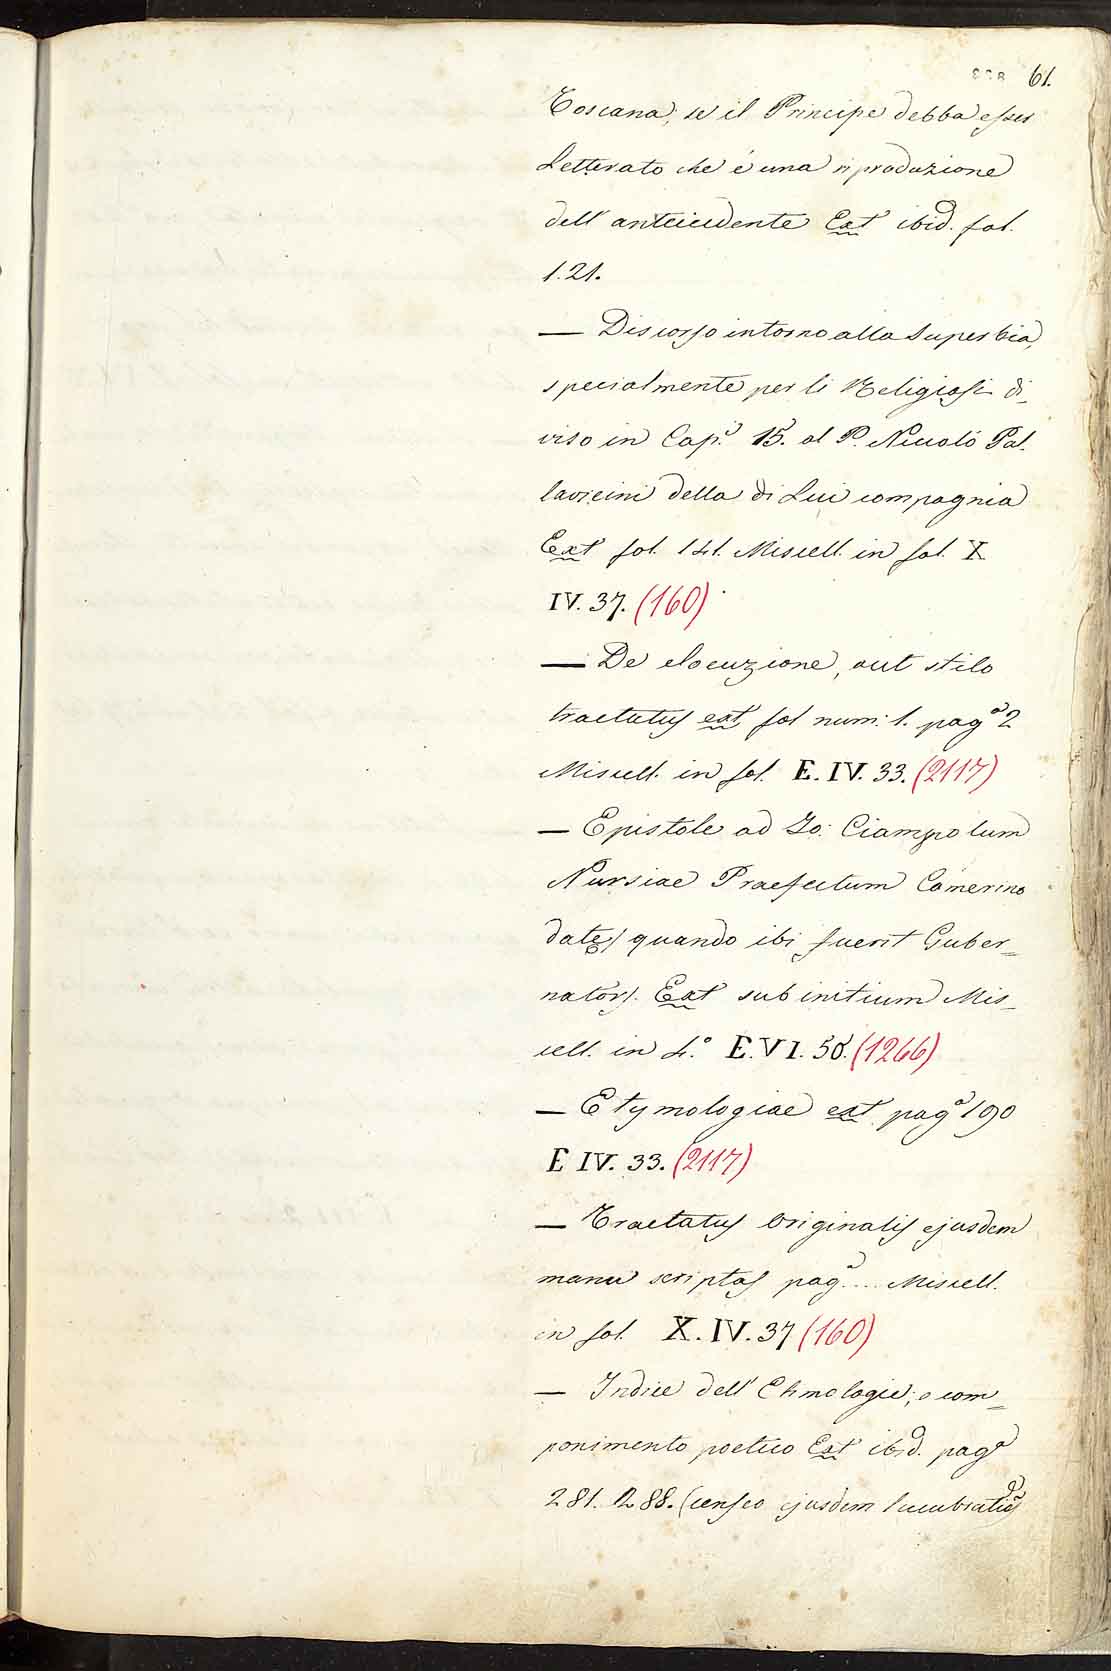 61.
Toscana; se il Principe debba esser
Letterato che è una riproduzione
dell' antecedente Ext ibid. fol.
121.
— Discorso intorno alla Superbia,
specialmente per li Religiosi di-
viso in Cap.i 15. al P. Niccolò Pal.
lavicini della di Lui compagnia
Ext fol. 141. Miscell. in fol. X
IV. 37. (160)
— De elocuzione, aut stilo
tractatus ext fol num: 1. pag.a 2
Miscell. in fol. E. IV. 33. (2117)
— Epistole ad Jo: Ciampolum
Nursiae Praefectum Camerino
date / quando ibi fuerit Guber=
nator /. Ext sub initium Mis-
cell. in 4.° E. VI. 38. (1266)
— Etymologiae ext. pag.a 190
E IV. 33. (2117)
— Tractatus originalis ejusdem
manu scriptas pag.a .... Miscell.
in fol. X. IV. 37 (160)
— Indice dell' Etimologie; e com=
ponimento poetico Ext ibid. pag.a
281. 288. (censeo ejusdem lucubratio͠es